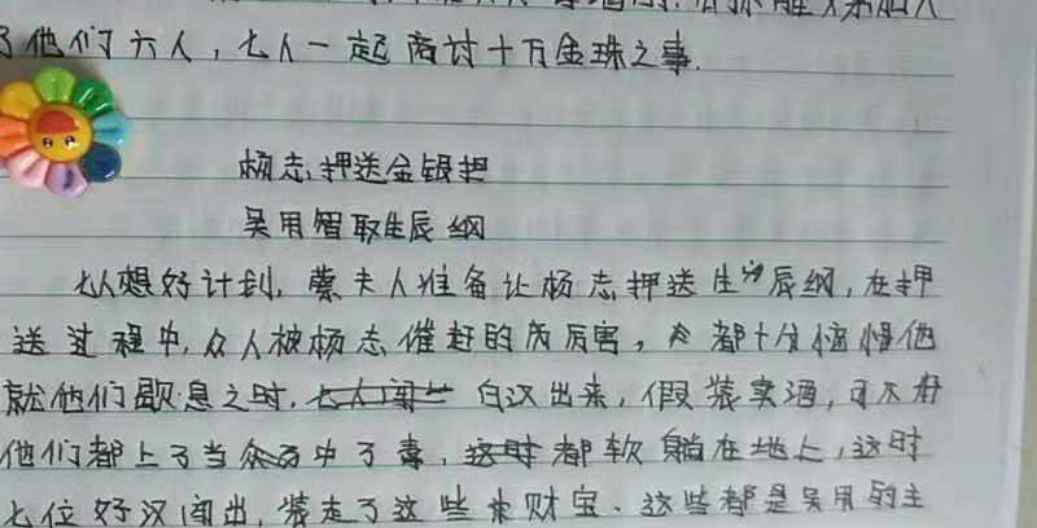 了他们六人，七人一起商讨十万金珠之事.
杨志押送金银担
吴用智取生辰纲
七人想好计划，蔡夫人准备让杨志押送生辰纲，在押
送过程中，众人被杨志催赶的厉害，都十分恼恨他
就他们歇息之时，白汉出来，假装卖酒，可不料
他们都上了当中了毒，都软躺在地上，这时
七位好汉闯出，装走了这些财宝、这些都是吴用的主